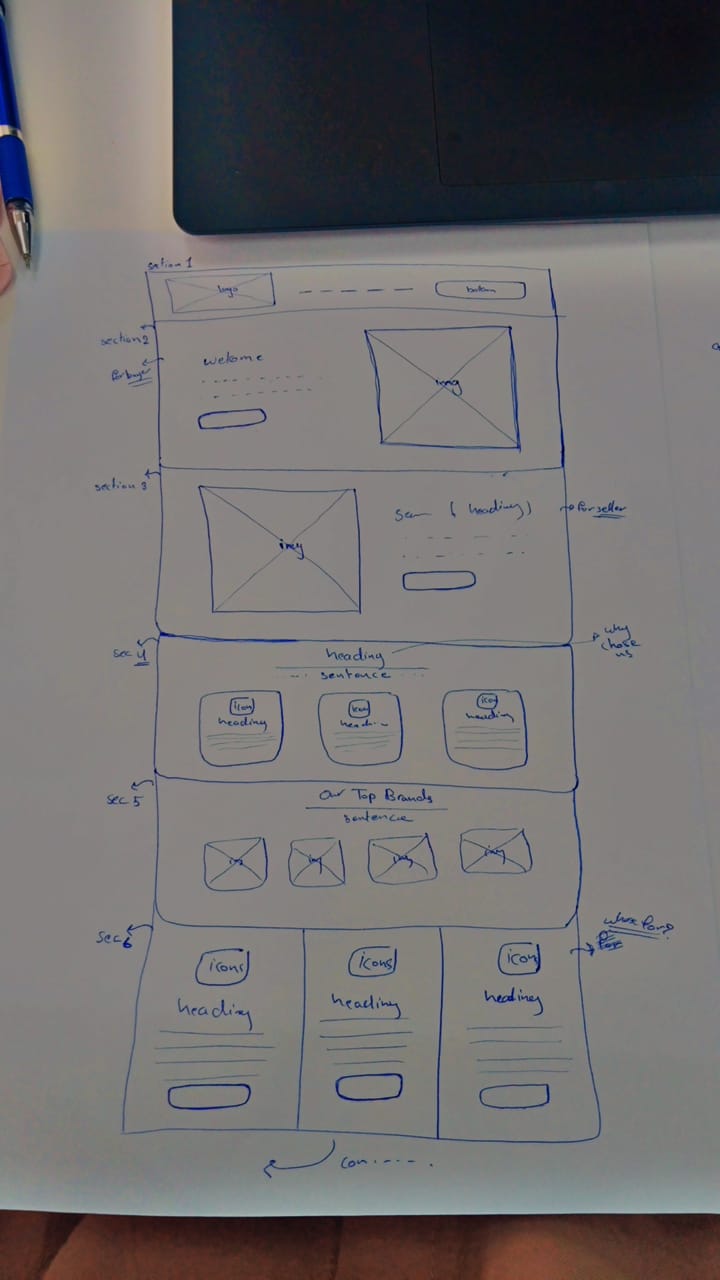 section 1
logo
button
section 2
For buyer
welcome
img
section 3
img
(heading)
For seller
sec 4
heading
why
chose
us
sentence
icon
heading
icon
icon
heading
sec 5
Our Top Brands
sentence
img
img
img
sec 6
icons
heading
icons
heading
icon
heading
con